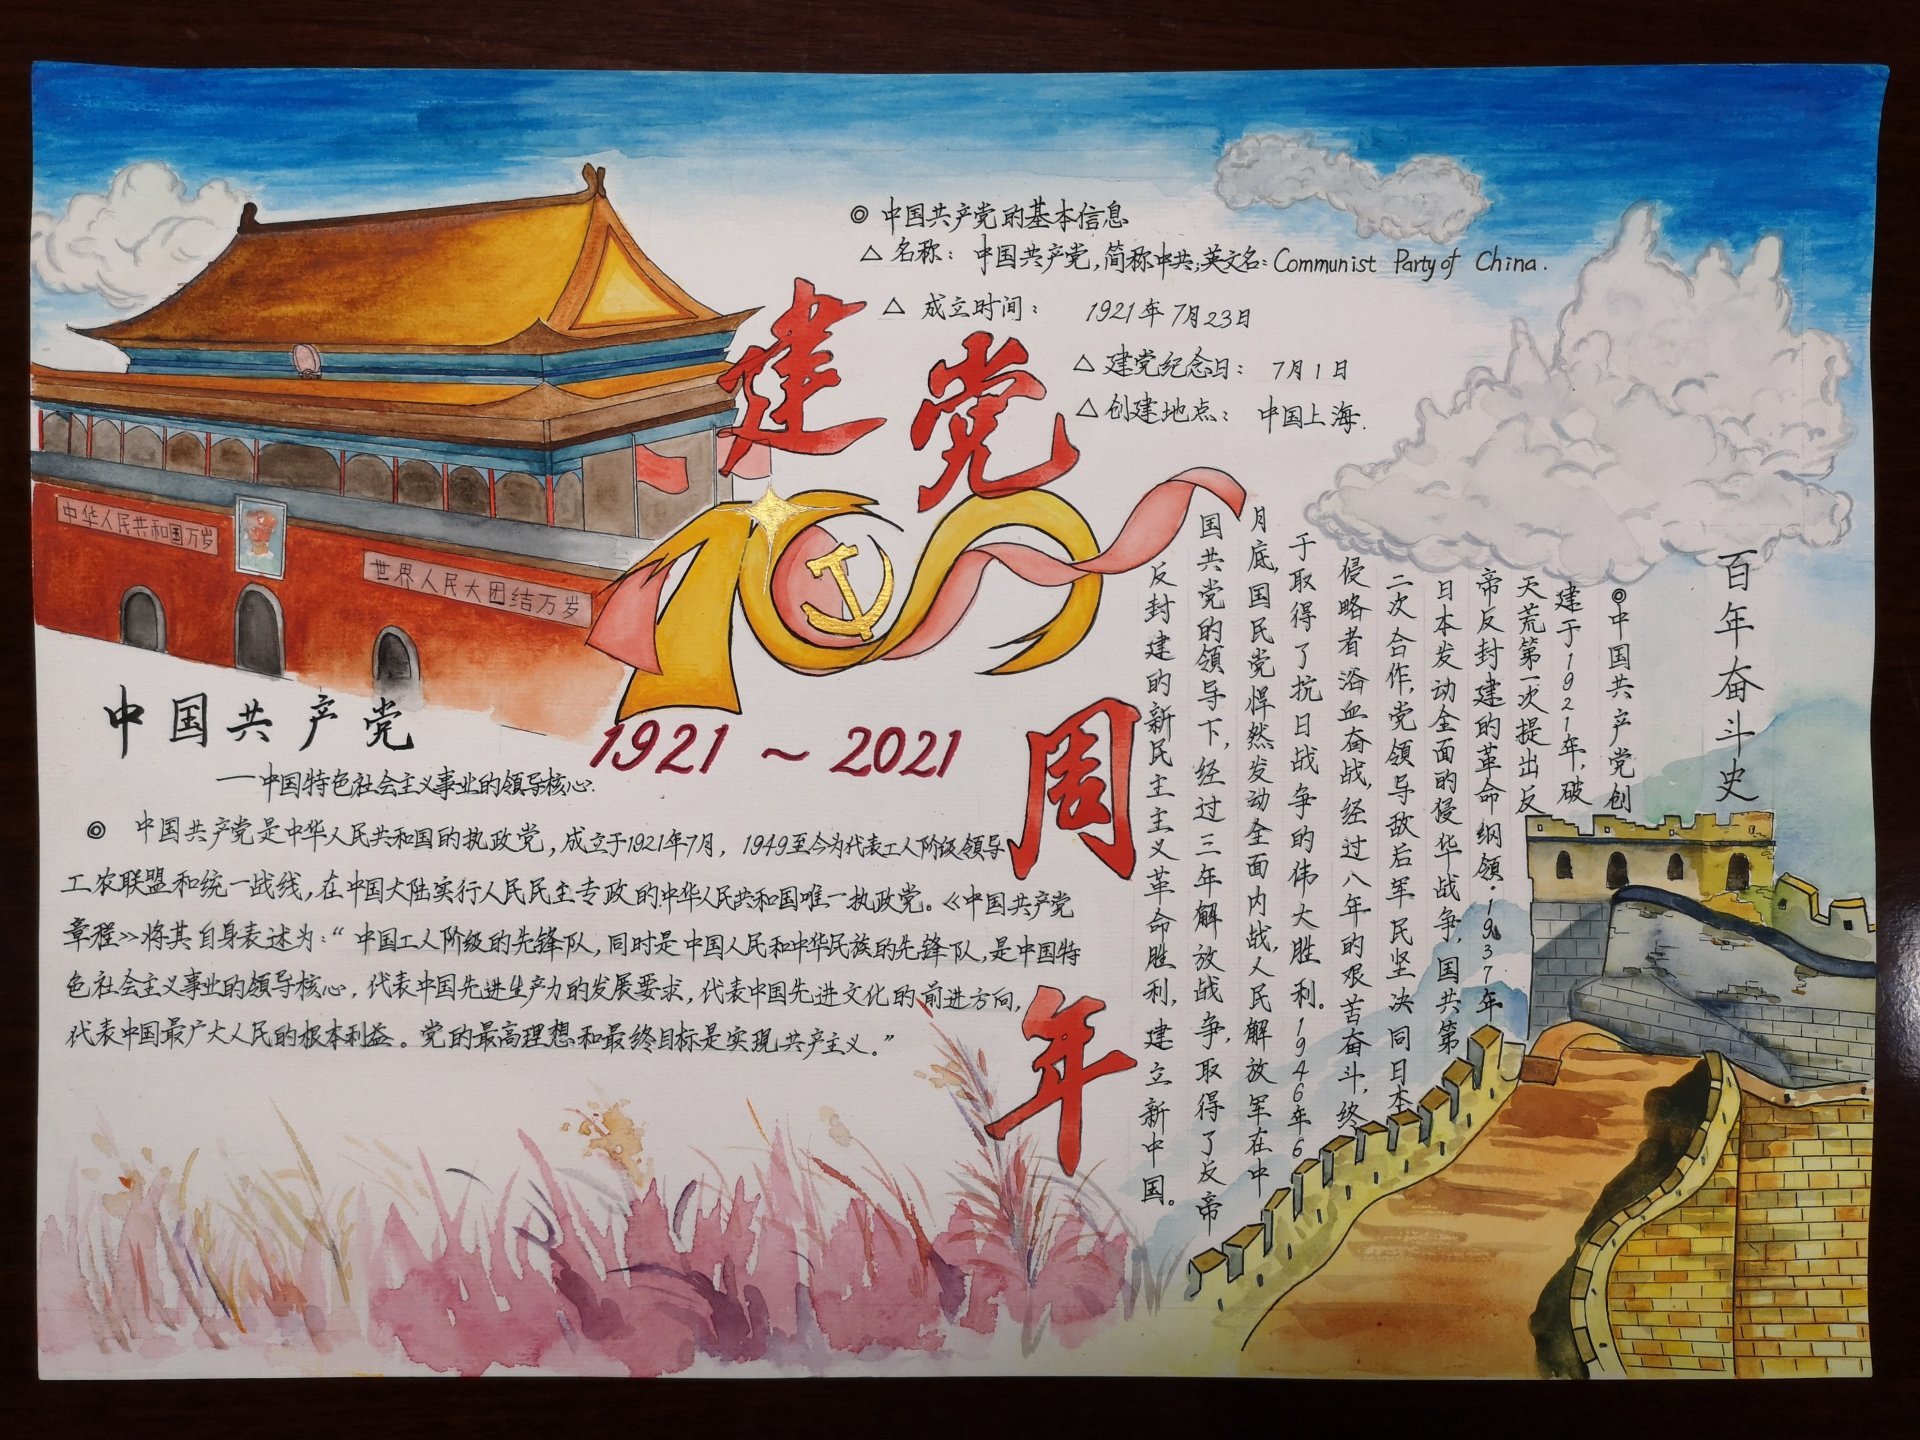 ◎ 中国共产党的基本信息
△ 名称：中国共产党，简称中共；英文名：Communist Party of China.
△ 成立时间： 1921年7月23日
△ 建党纪念日： 7月1日
△ 创建地点： 中国上海.
建党
100
周
年
1921 ~ 2021
中华人民共和国万岁
世界人民大团结万岁
中国共产党
——中国特色社会主义事业的领导核心.
◎ 中国共产党是中华人民共和国的执政党，成立于1921年7月，1949至今为代表工人阶级领导
工农联盟和统一战线，在中国大陆实行人民民主专政的中华人民共和国唯一执政党。《中国共产党
章程》将其自身表述为：“中国工人阶级的先锋队，同时是中国人民和中华民族的先锋队，是中国特
色社会主义事业的领导核心，代表中国先进生产力的发展要求，代表中国先进文化的前进方向，
代表中国最广大人民的根本利益。党的最高理想和最终目标是实现共产主义。”
百年奋斗史
◎中国共产党创
建于1921年，破
天荒第一次提出反
帝反封建的革命纲领．1937年
日本发动全面的侵华战争，国共第
二次合作，党领导敌后军民坚决同日本
侵略者浴血奋战，经过八年的艰苦奋斗，终
于取得了抗日战争的伟大胜利。1946年6
月底，国民党悍然发动全面内战，人民解放军在中
国共党的领导下，经过三年解放战争，取得了反帝
反封建的新民主主义革命胜利，建立新中国。